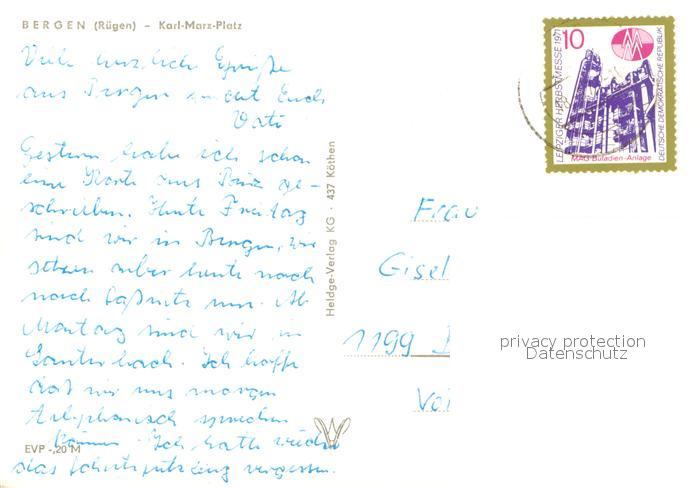 BERGEN (Rügen) – Karl-Marx-Platz
Viele herzliche Grüße
aus Bergen sendet Euch
Vati
Gestern habe ich schon
eine Karte aus Binz ge-
schrieben. Heute Freitag
sind wir in Bergen, wir
setzen aber heute noch
nach Saßnitz um. Ab
Montag sind wir in
Ich hoffe
daß wir uns morgen
telephonisch sprechen
können. Ich hatte wieder
das Schuhputzzeug vergessen.
EVP -,20 M
Heldge-Verlag KG · 437 Köthen
LEIPZIGER HERBSTMESSE 1971
10
DEUTSCHE DEMOKRATISCHE REPUBLIK
MAG-Butadien-Anlage
Frau
Gisel
1199
privacy protection
Datenschutz